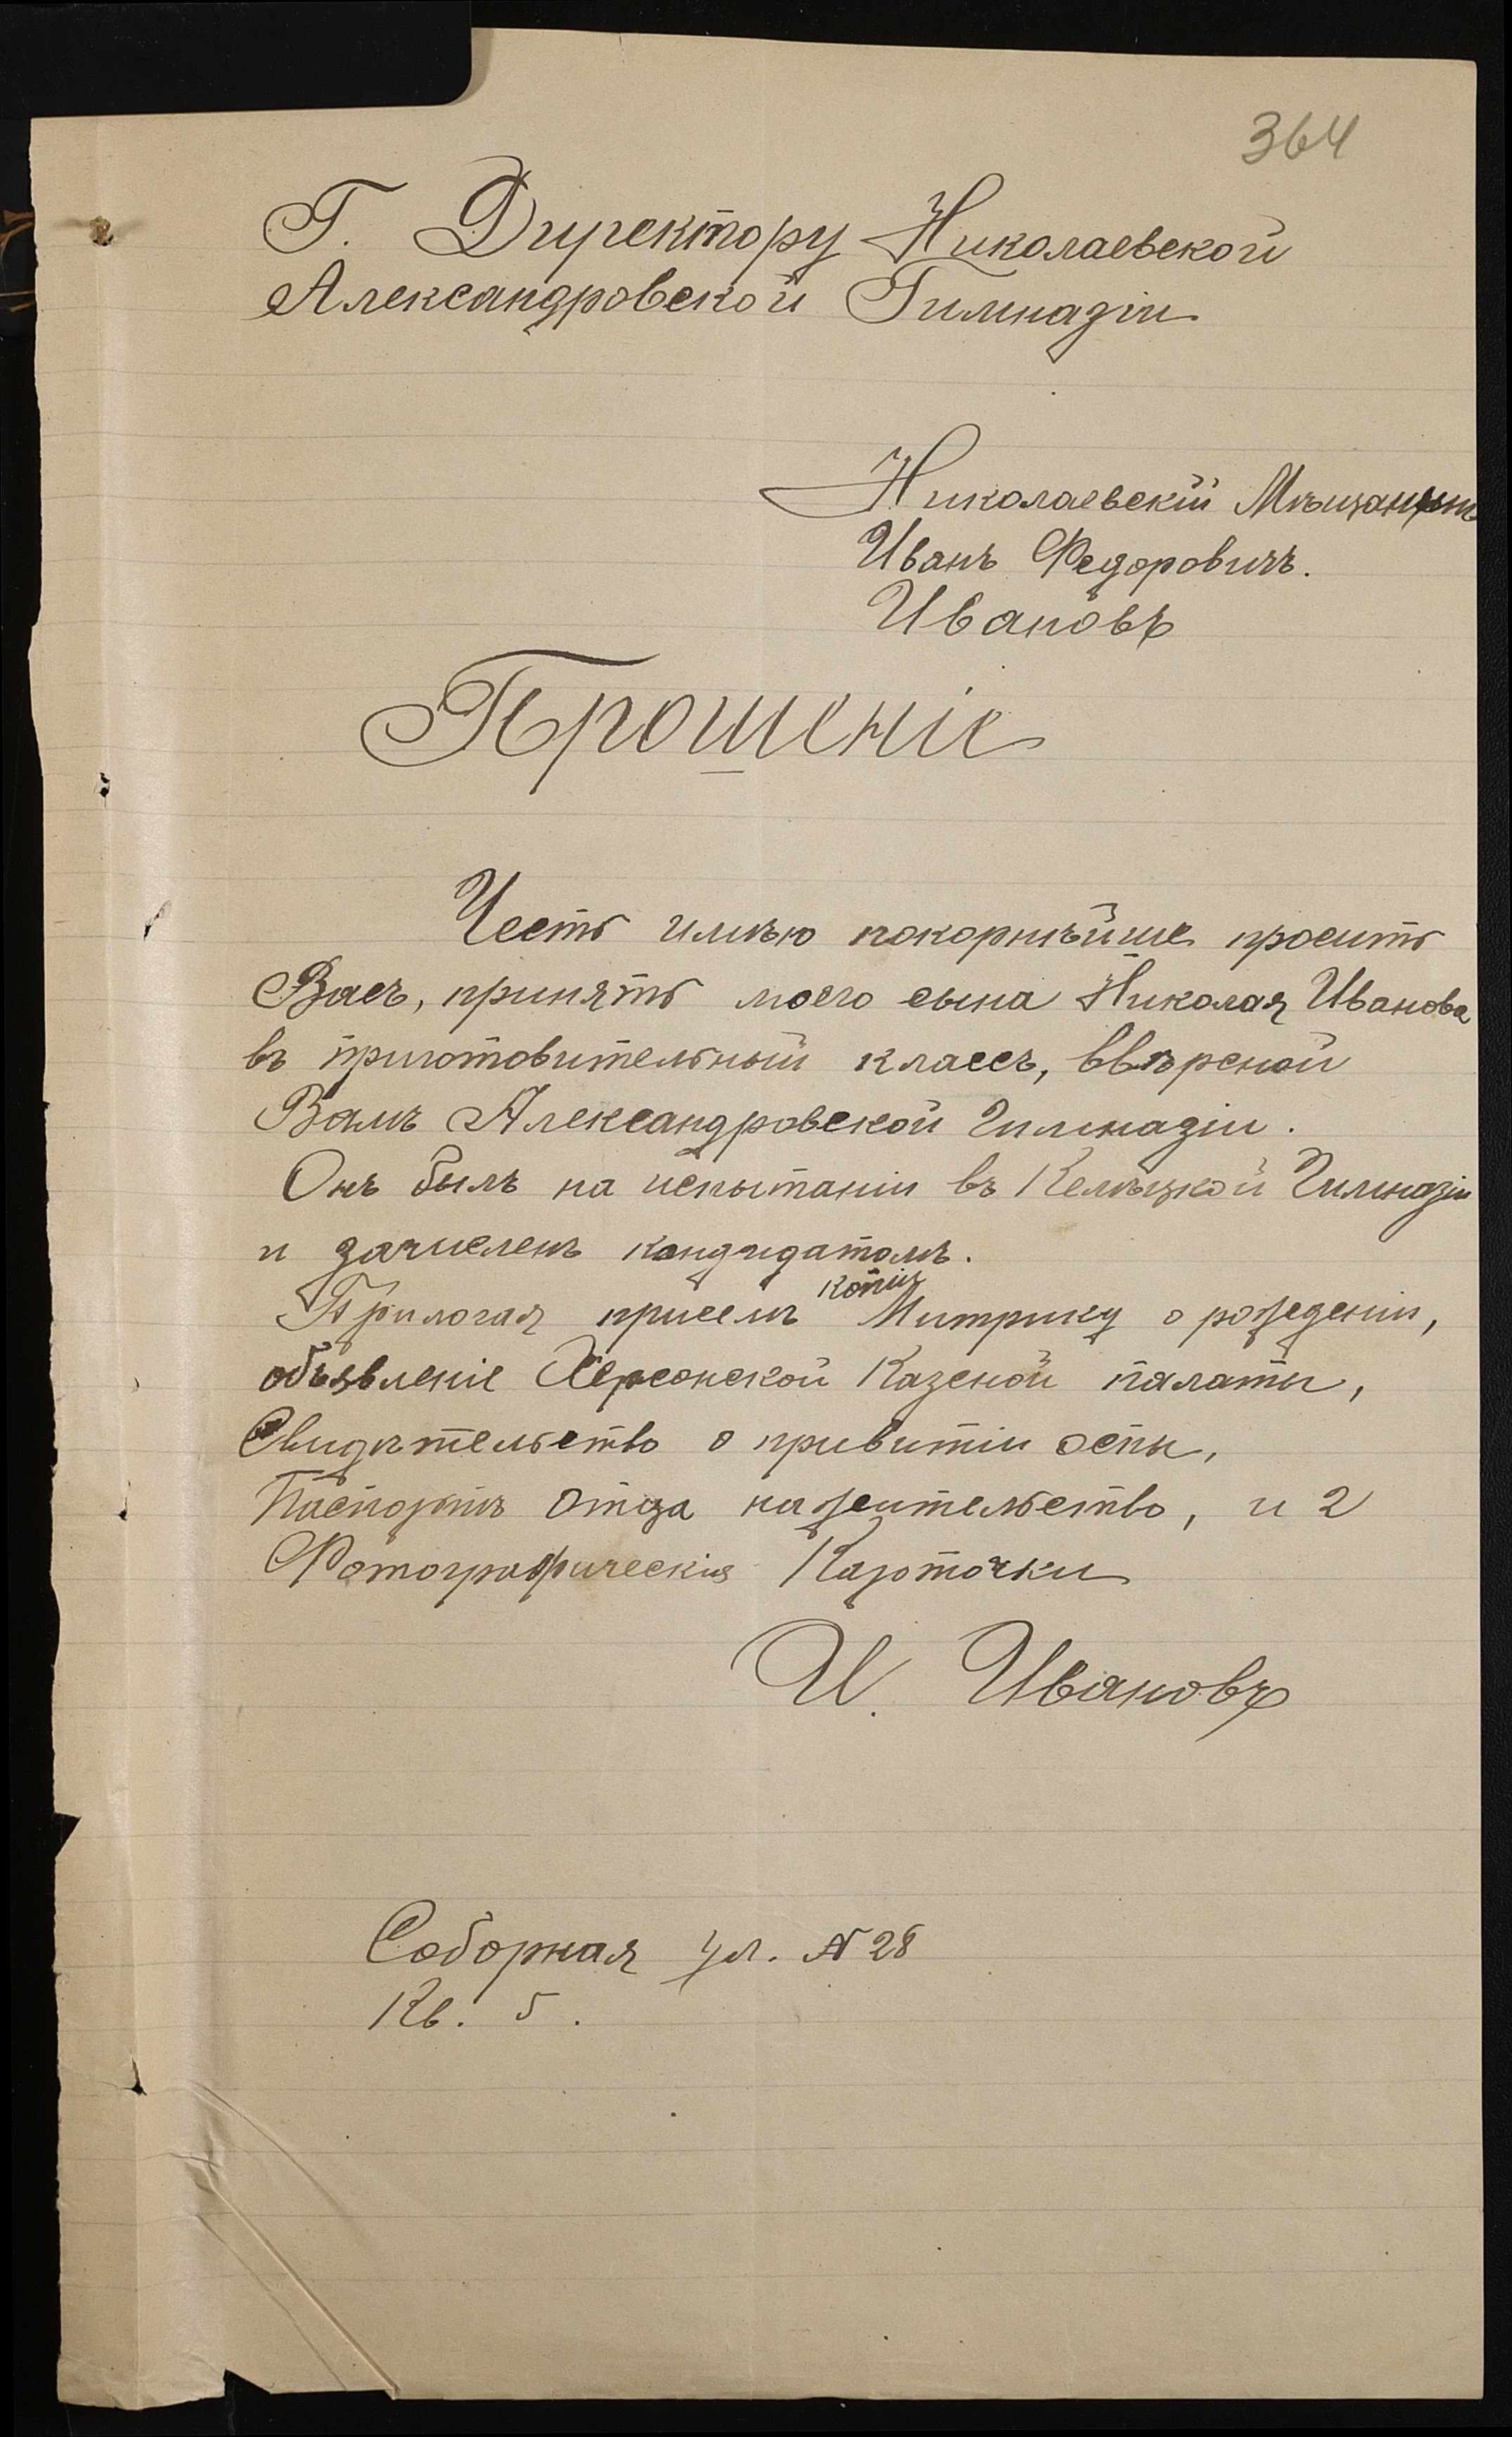 364
Г. Директору Николаевской
Александровской Гимназіи
Николаевскій Мѣщанинъ
Иванъ Федоровичъ.
Ивановъ
Прошеніе
Честь имѣю покорнѣйше просить
Васъ, принять моего сына Николая Иванова
въ приготовительный классъ, ввѣреной
Вамъ Александровской Гимназіи.
Онъ былъ на испытаніи въ Келѣцкой Гимназіи
и зачисленъ кандидатомъ.
копію
Прилогая присемъ Митрику о рожеденіи,
объявленіе Херсонской Казеной палаты,
Свидѣтельство о привитіи оспы,
Паспортъ Отца на жительство, и 2
Фотографическія Карточки
И. Ивановъ
Соборная ул. № 28
Кв. 5.